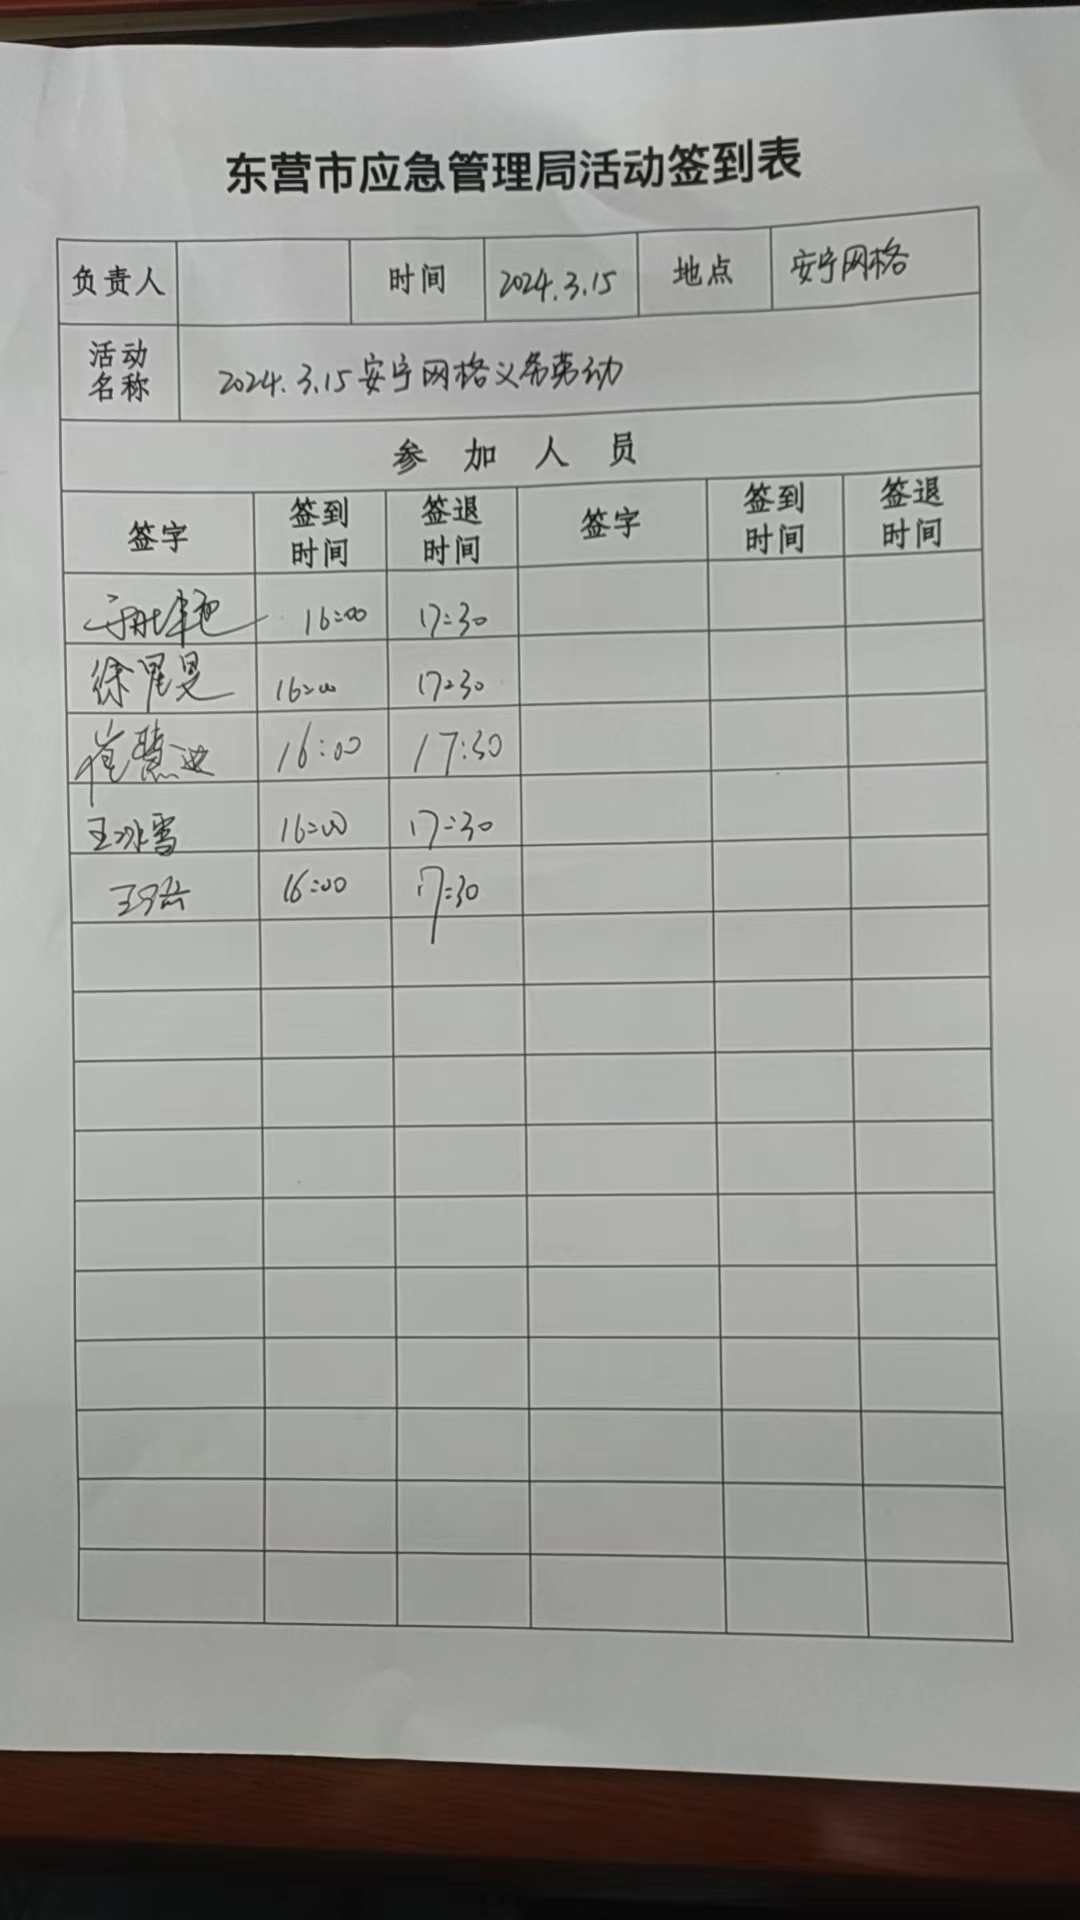 东营市应急管理局活动签到表
负责人 时间 2024.3.15 地点 安宁网格
活动名称 2024.3.15安宁网格义务劳动
参加人员
签字 签到时间 签退时间 签字 签到时间 签退时间
16:00 17:30
徐星昊 16:00 17:30
崔慧 16:00 17:30
王冰雪 16:00 17:30
16:00 17:30